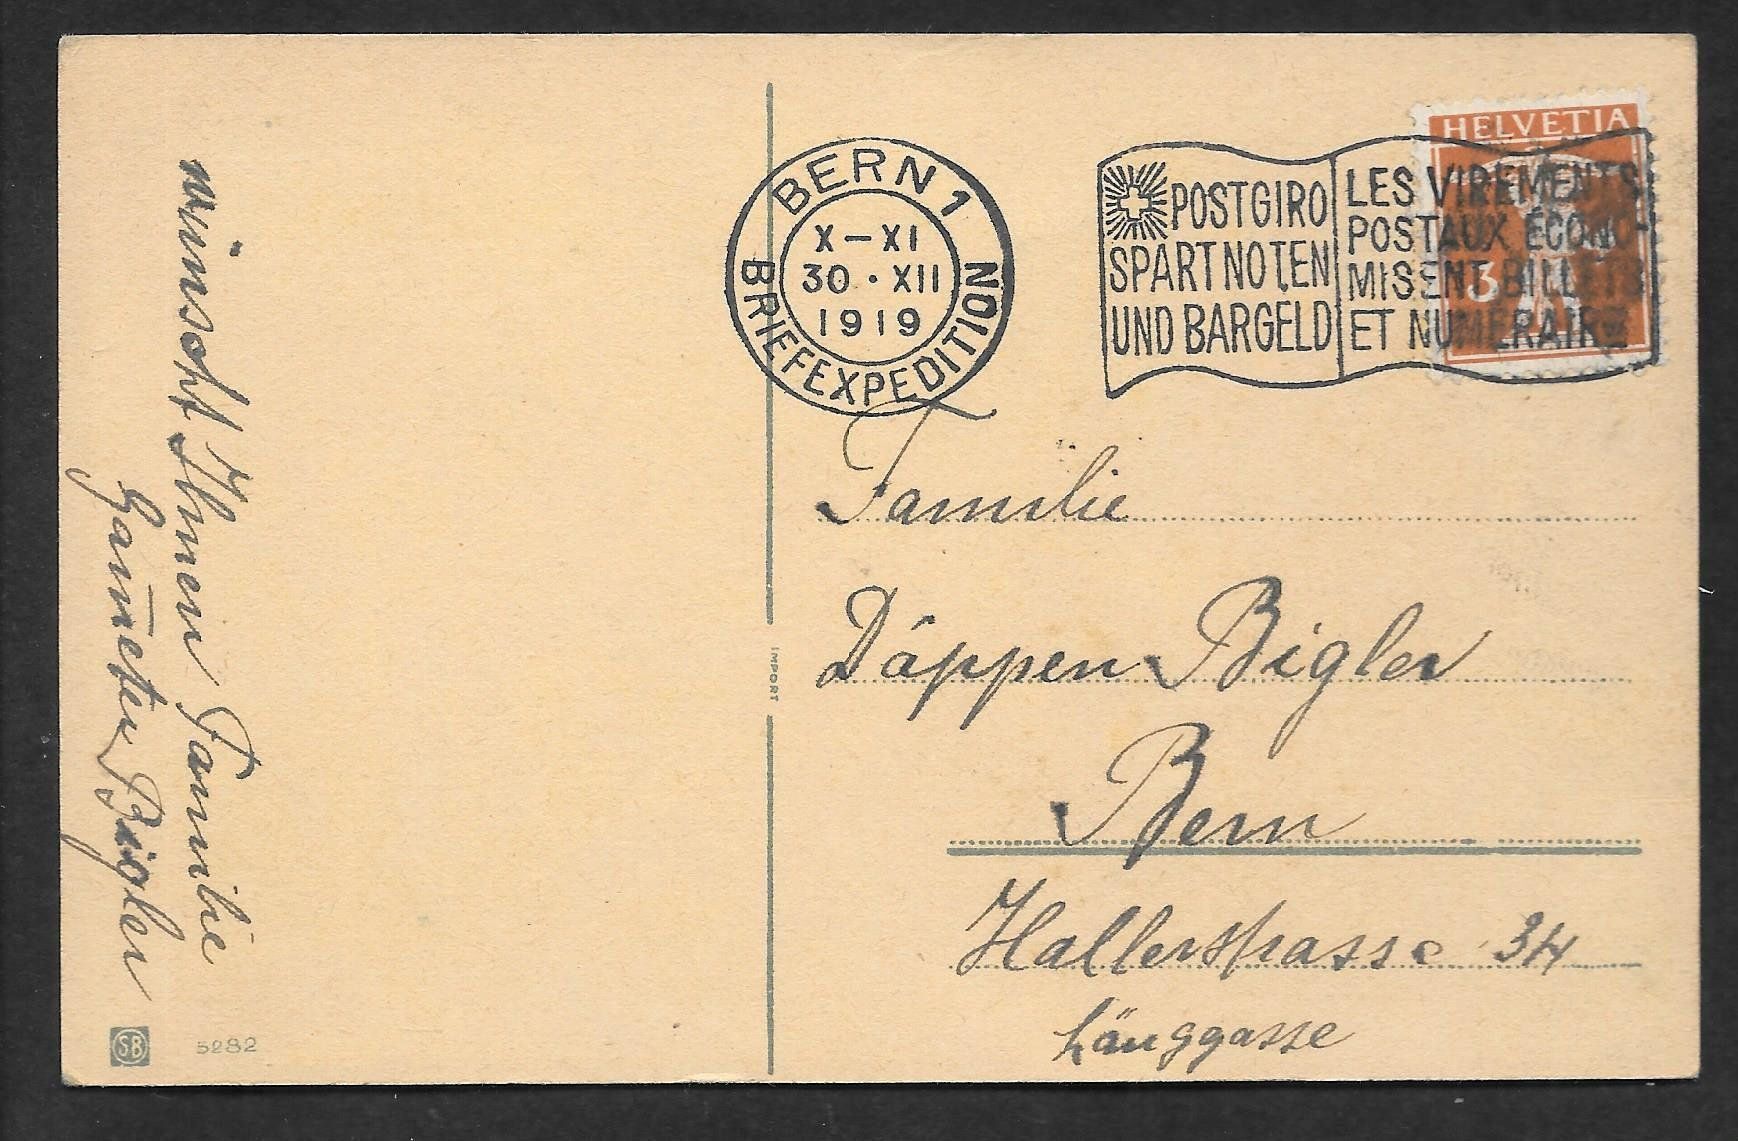 wünscht Ihnen Familie
Bigler
SB
5282
IMPORT
BERN 1
X-XI
30·XII
1919
BRIEFEXPEDITION
POSTGIRO
SPART NOTEN
UND BARGELD
LES VIREMENTS
POSTAUX ÉCONO-
MISENT BILLETS
ET NUMÉRAIRE
HELVETIA
3
Familie
Däppen Bigler
Bern
Hallerstrasse 34
Länggasse